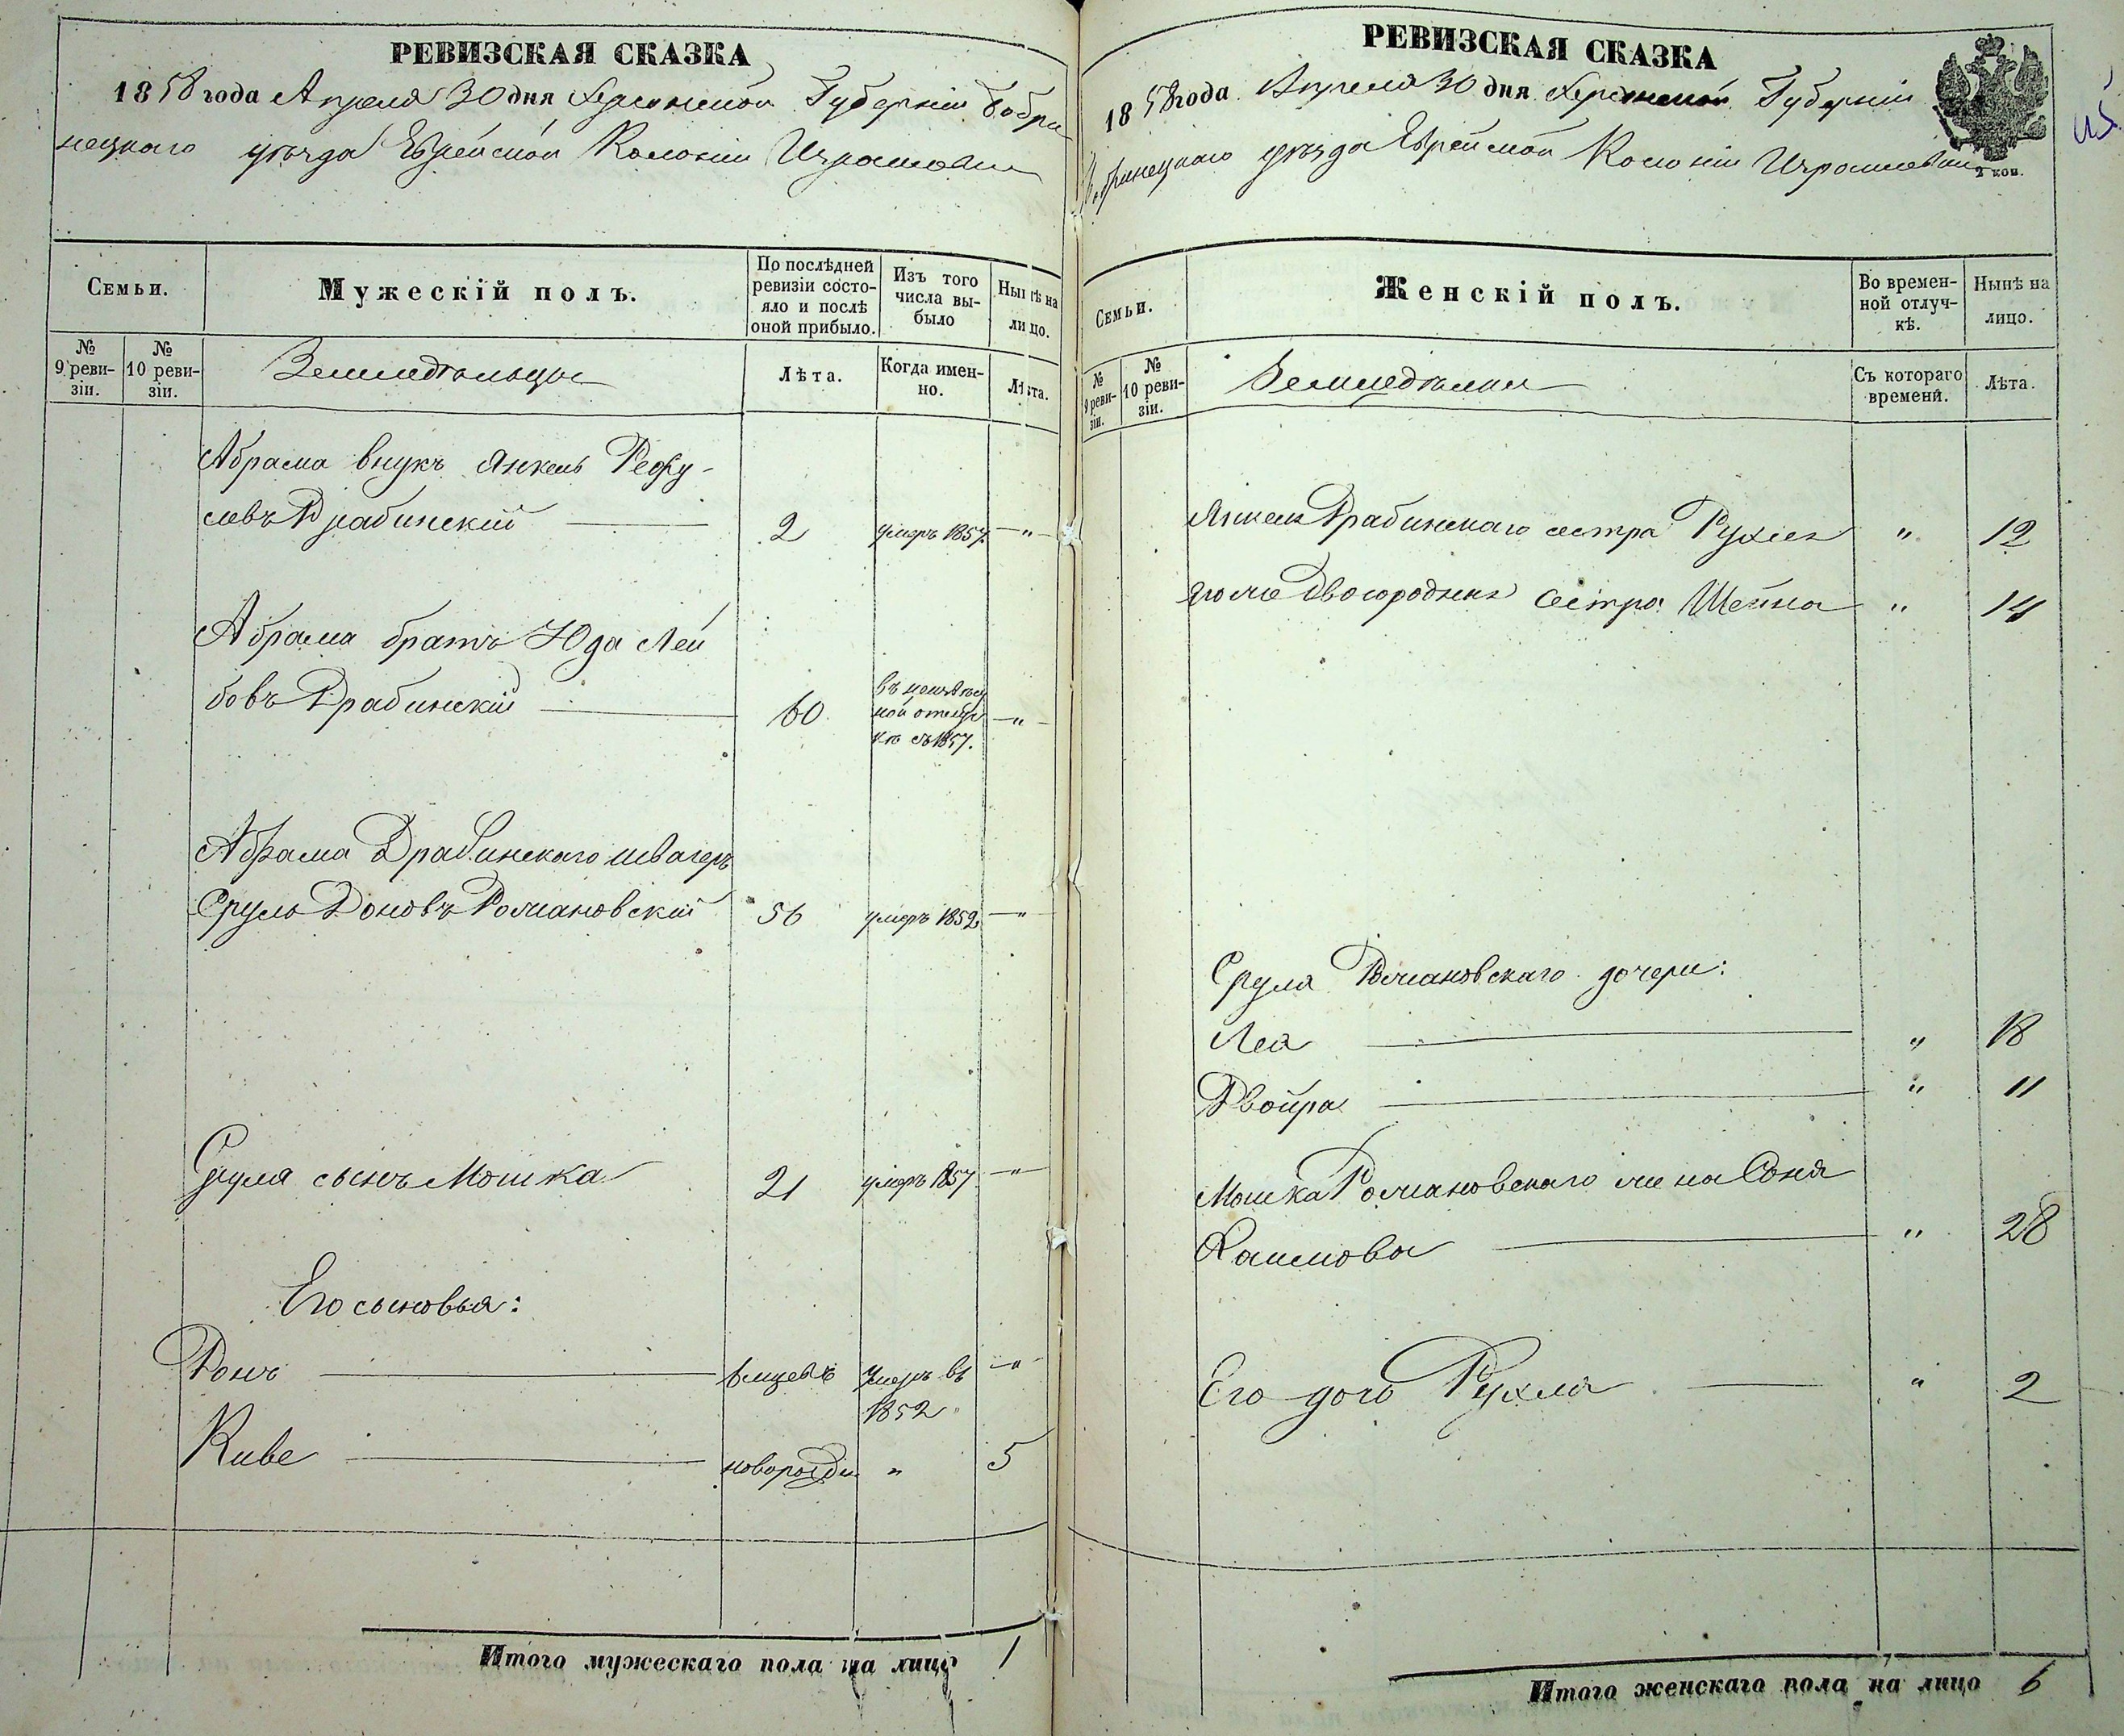 РЕВИЗСКАЯ СКАЗКА
1858 года Апреля 30 дня Херсонской Губерніи Бобри
нецкаго уѣзда Еврейской Колоніи Израилевки
Семьи.
Мужескій полъ.
По послѣдней ревизіи состояло и послѣ оной прибыло.
Изъ того числа выбыло
Нынѣ на лицо.
№ 9 реви-зіи.
№ 10 реви-зіи.
Земледѣльцы
Лѣта.
Когда имен-но.
Лѣта.
Абрама внукъ Янкель Рефу-
левъ Драбинскій 2 умеръ 1857 "
Абрама братъ Юда Лей
бовъ Драбинскій 60 въ неизвѣст
ной отлуч
кѣ съ 1857. "
Абрама Драбинскаго швагеръ
Сруль Доновъ Романовскій 56 умеръ 1852 "
Сруля сынъ Мошка 21 умеръ 1857 "
Его сыновья:
Донъ 6 мцевъ Умеръ въ "
1852
Киве новорожден " 5
Итого мужескаго пола на лицо 1
РЕВИЗСКАЯ СКАЗКА
1858 года Апреля 30 дня Херсонской Губерніи
Бобринецкаго уѣзда Еврейской Колоніи Израилевки
2 коп.
Семьи.
Женскій полъ.
Во времен-ной отлуч-кѣ.
Нынѣ на лицо.
№ 9 реви-зіи.
№ 10 реви-зіи.
Съ котораго времени.
Лѣта.
Янкеля Драбинскаго сестра Рухля " 12
Его же двоюродная сестра Шейна " 14
Сруля Романовскаго дочери:
Лея " 18
Двойра " 11
Мошка Романовскаго жена Соня
Хаимова " 28
Его дочь Рухля " 2
Итого женскаго пола на лицо 6